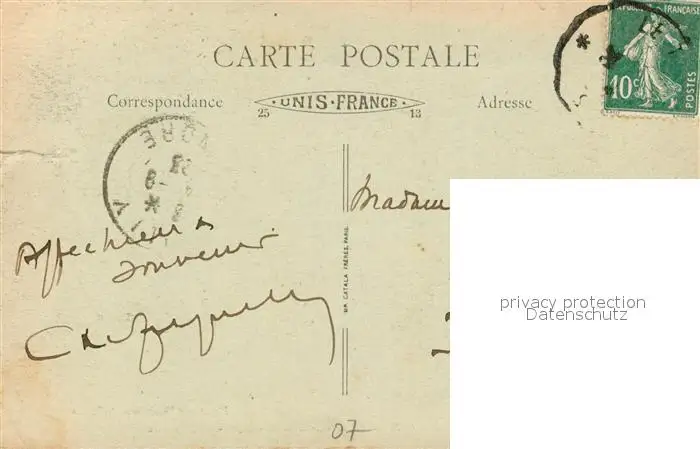 CARTE POSTALE
Correspondance
UNIS-FRANCE
25 13
Adresse
RÉPUBLIQUE FRANÇAISE
10c
POSTES
Madam
Affectueux
souvenir
IMP. CATALA FRÈRES, PARIS.
07
privacy protection
Datenschutz